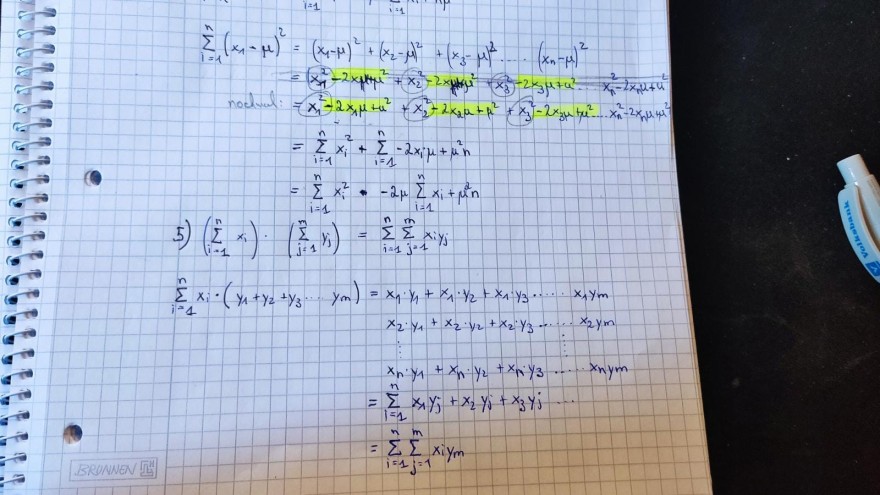 n
∑ (x₁-μ)² = (x₁-μ)² + (x₂-μ)² + (x₃-μ)² ..... (xₙ-μ)²
i=1
nochmal: = x₁² - 2x₁μ + u² + x₂² - 2x₂μ + μ² + x₃² - 2x₃μ + μ² .... xₙ² - 2xₙμ + μ²
= ∑ᵢ₌₁ⁿ xᵢ² + ∑ᵢ₌₁ⁿ -2xᵢμ + μ²n
= ∑ᵢ₌₁ⁿ xᵢ² • -2μ ∑ᵢ₌₁ⁿ xᵢ + μ²n
5) (∑ᵢ₌₁ⁿ xᵢ) · (∑ⱼ₌₁ᵐ yⱼ) = ∑ᵢ₌₁ⁿ ∑ⱼ₌₁ᵐ xᵢyⱼ
∑ᵢ₌₁ⁿ xᵢ · (y₁+y₂+y₃ ... yₘ) = x₁·y₁ + x₁·y₂ + x₁·y₃ ..... x₁yₘ
x₂·y₁ + x₂·y₂ + x₂·y₃ ..... x₂yₘ
xₙ·y₁ + xₙ·y₂ + xₙ·y₃ ..... xₙyₘ
= ∑ᵢ₌₁ⁿ x₁yⱼ + x₂yⱼ + x₃yⱼ ...
= ∑ᵢ₌₁ⁿ ∑ⱼ₌₁ᵐ xᵢyₘ
BRUNNEN
Volksbank